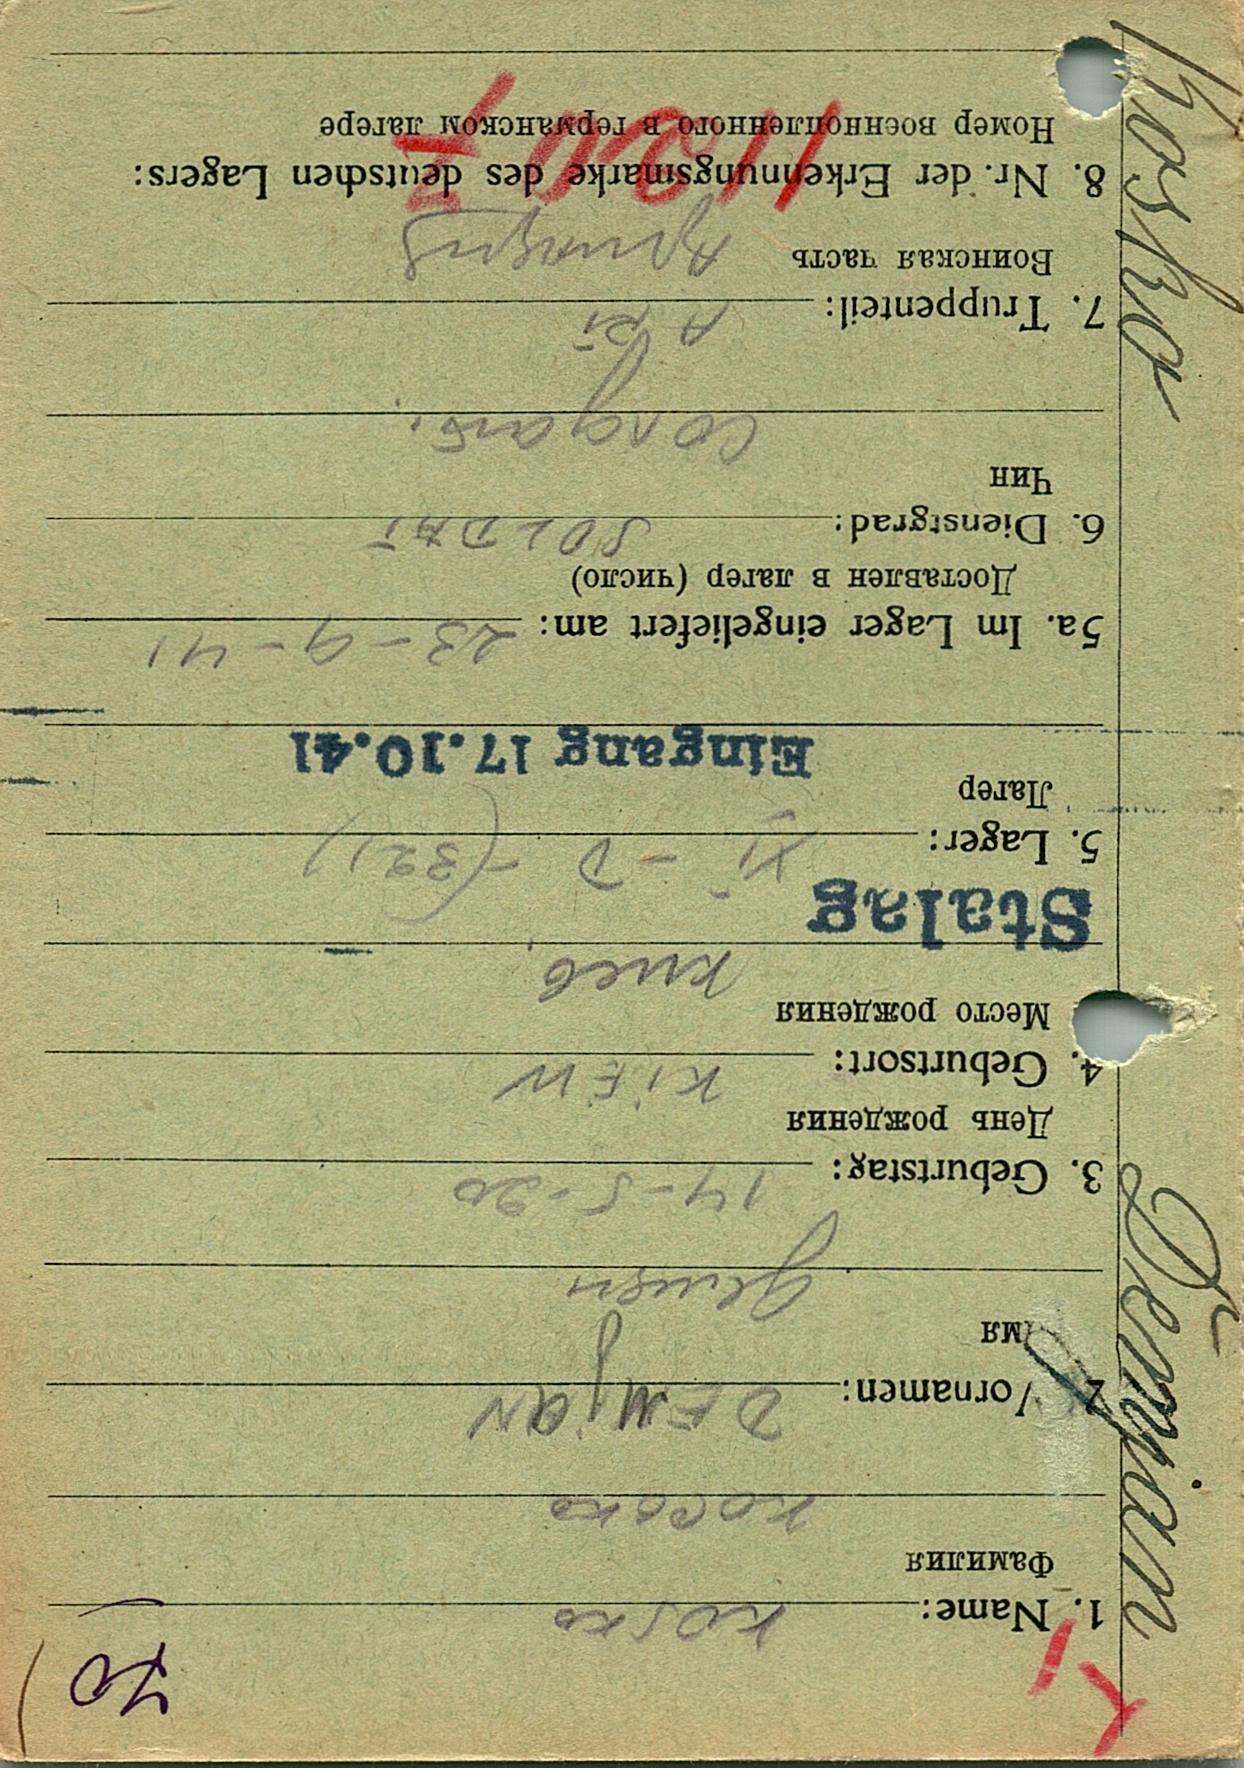 70
1. Name: KOSKO
Фамилия
Коско
2. Vornamen: DEMjAN
Имя
Демян
3. Geburtstag: 14-5-20
День рождения
4. Geburtsort: KiEW
Место рождения
Киев
Stalag
5. Lager: XI-D (321)
Лагер
Eingang 17.10.41
5a. Im Lager eingeliefert am: 23-9-41
Доставлен в лагер (число)
6. Dienstgrad: SOLDAT
Чин
Солдат.
7. Truppenteil: ARt
Воинская часть
8. Nr. der Erkennungsmarke des deutschen Lagers:
Номер военнопленного в германском лагере
Kosko Demjan